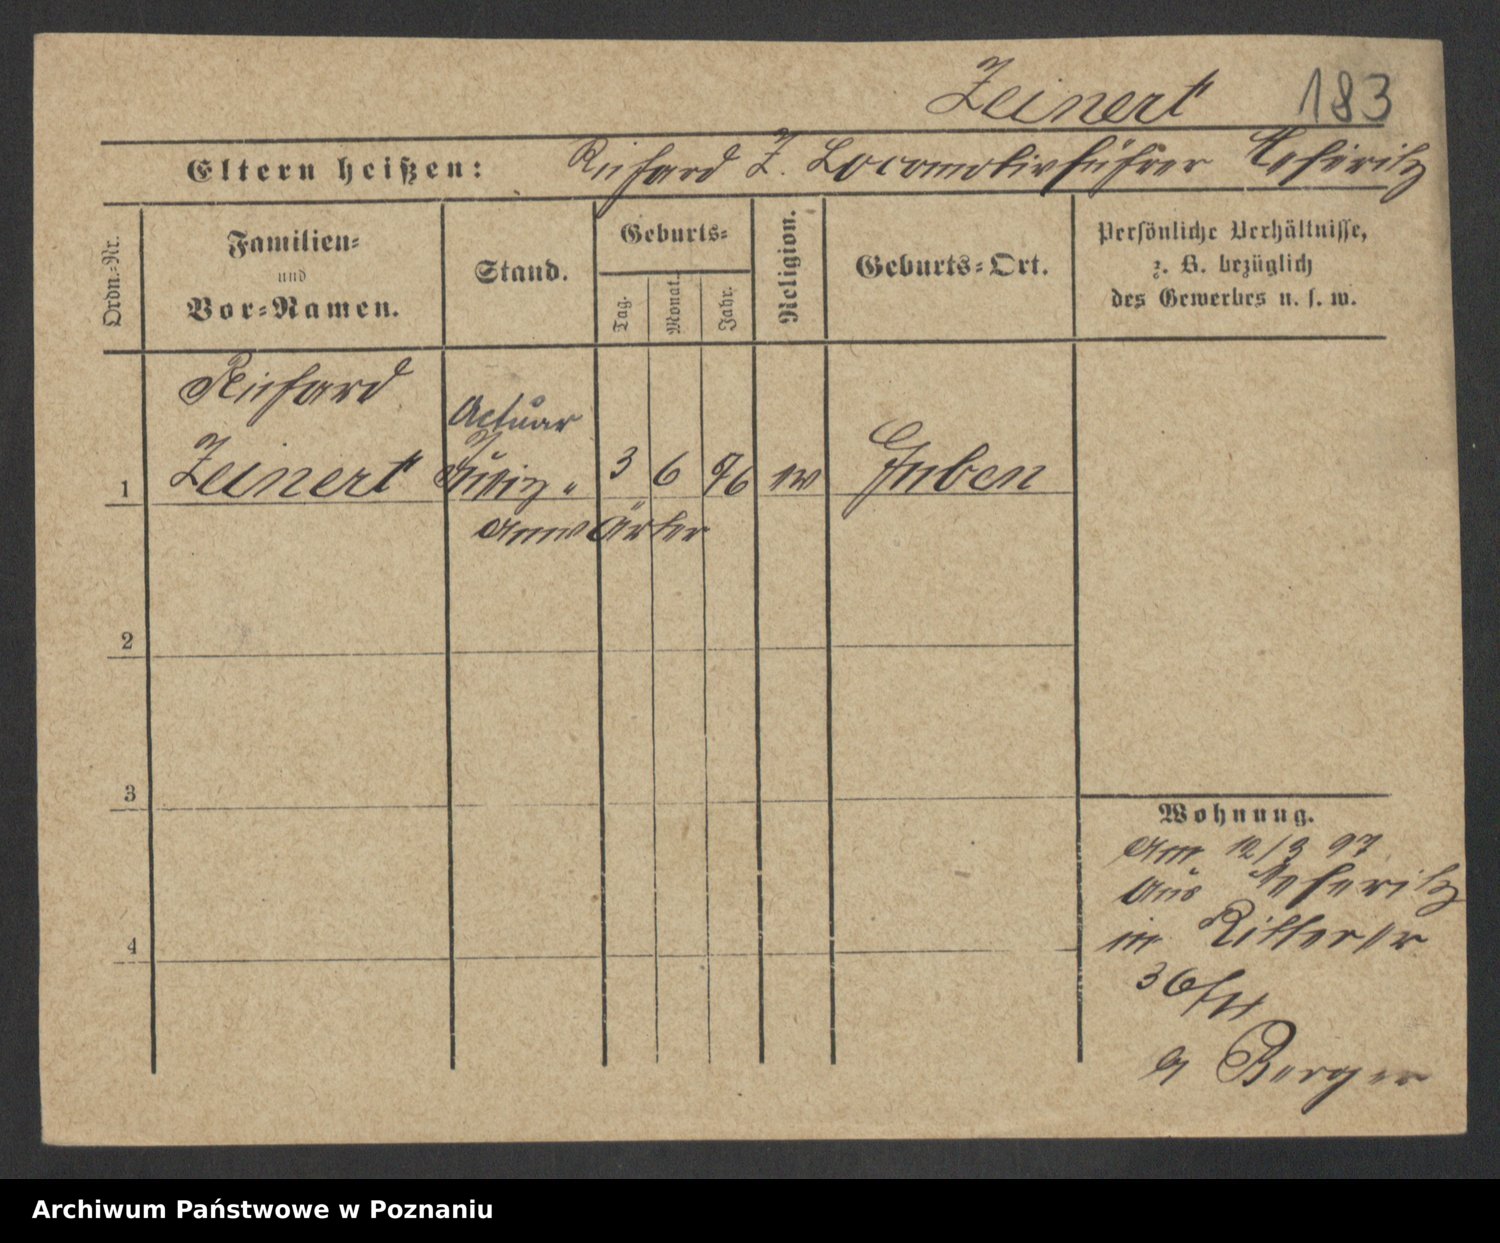 Zeinert 183
Eltern heißen: Richard Z. Locomotivführer Meseritz
Ordn.=Nr.
Familien=
und
Vor=Namen.
Stand.
Geburts=
Tag.
Monat.
Jahr.
Religion.
Geburts=Ort.
Persönliche Verhältnisse,
z. B. bezüglich
des Gewerbes u. s. w.
Richard
Actuar
1 Zeinert Justiz= 3 6 76 ev Guben
Anwärter
2
3
4
Wohnung.
Am 12/3 97
aus Meseritz
in Ritterstr
36/
Berger
Archiwum Państwowe w Poznaniu